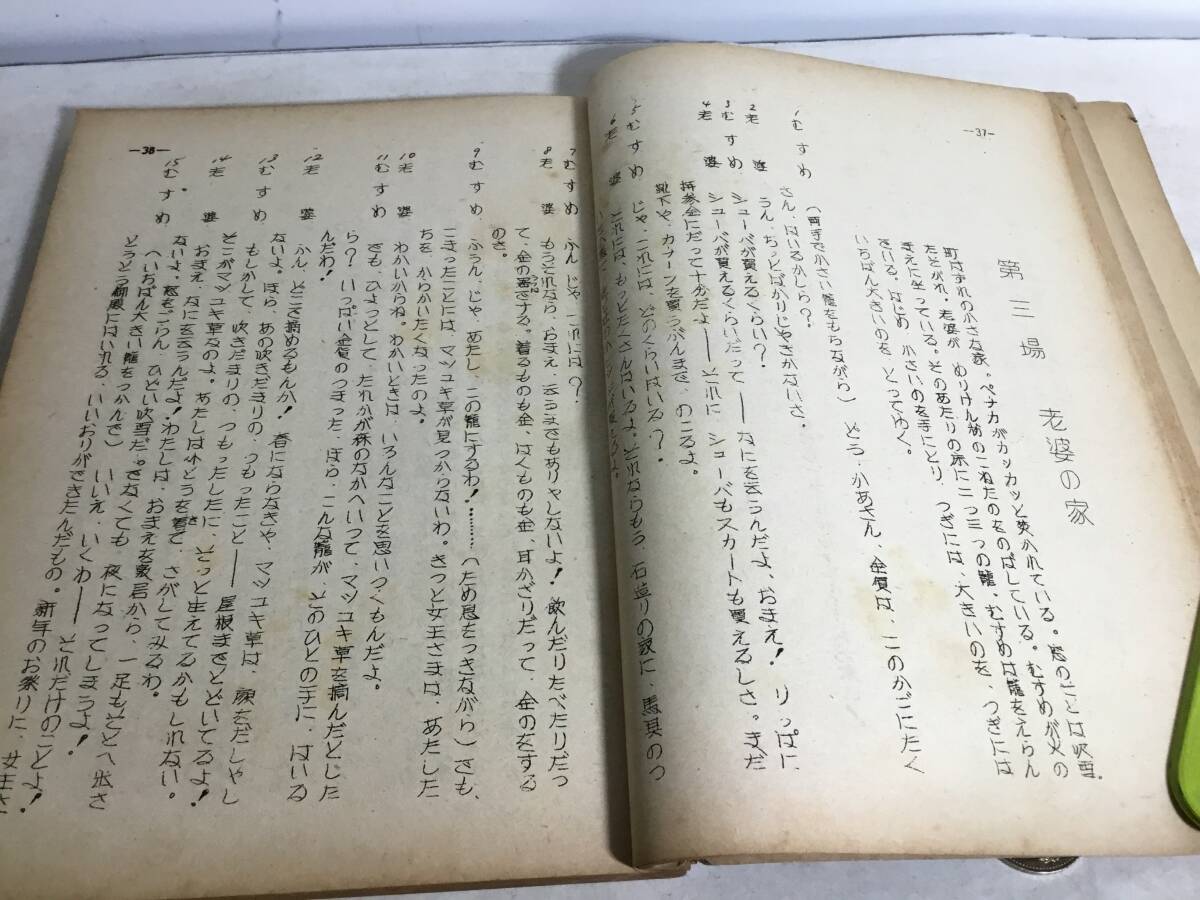 —37—
第三場　老婆の家
町はずれの小さな家。ペチカがカッカッと焚かれている。窓のそとは吹雪。
たそがれ。老婆が めりけん粉のこねたのをのばしている。むすめが火の
まえに坐っている。そのあたりの床に二つ三つの籠。むすめは籠をえらん
でいる。はじめ 小さいのを手にとり、つぎには、大きいのを、つぎには
いちばん大きいのを とってゆく。
1 むすめ （両手で小さい籠をもちながら） どう、かあさん、金貨は、このかごにたく
さん、はいるかしら？
2 老　婆 うん、ちっとばかりじゃきかないさ。
3 むすめ シューバが買えるくらい？
4 老　婆 シューバが買えるくらいだって——なにを云うんだよ、おまえ！ りっぱに
持参金にだって十分だよ——それに シューバもスカートも買えるしさ。まだ
靴下や、カナーンを買うぶんまで、のこるよ。
5 むすめ じゃ、これには、どのくらいはいる？
6 老　婆 それには、もっとたくさんはいるよ。それならもう、石造りの家に、馬具のつ
—38—
7 むすめ ふん じゃ これには？
8 老　婆 もうそれなら、おまえ、云うまでもありやしないよ！ 飲んだりたべたりだっ
て、金の器でする。着るものも金、はくものも金、耳かざりだって、金のをする
のさ。
9 むすめ ふうん、じゃ、あたし、この籠にするわ！………（ため息をつきながら）でも、
こまったことには、マツユキ草が見つからないわ。きっと女王さまは、あたした
ちを からかいたくなったのよ。
10 老　婆 わかいからね。わかいときは、いろんなことを思いつくもんだよ。
11 むすめ でも、ひょっとして、だれかが森のなかへいって、マツユキ草を摘んだとした
ら？ いっぱい金貨のつまった、ほら、こんな籠が、そのひとの手に、はいる
んだわ！
12 老　婆 ふん、どこで摘めるもんか！ 春にならなきゃ、マツユキ草は、顔をだしゃし
ないよ。ほら、あの吹きだまりの、つもったこと——屋根までとどいてるよ！
13 むすめ もしかして、吹きだまりの、つもったしたに、そっと生えてるかもしれない。
どこがマツユキ草なのよ。あたしは外とうを着て、さがしてみるわ。
14 老　婆 おまえ、なにを云うんだよ！わたしは、おまえを敷居から、一足もそとへ出さ
ないよ。窓をごらん、ひどい吹雪だ。でなくても 夜になってしまうよ！
15 むすめ （いちばん大きい籠をつかんで） いいえ、いくわ—— それだけのことよ！
とうとう御殿にはいれる、いいおりができたんだもの。新年のお祭りに、女王さ